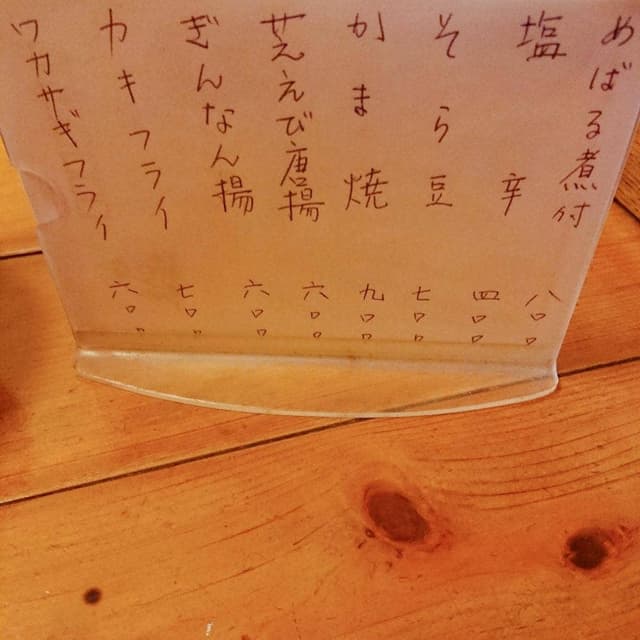 めばる煮付 八〇〇
塩辛 四〇〇
そら豆 七〇〇
かま焼 九〇〇
芝えび唐揚 六〇〇
ぎんなん揚 六〇〇
カキフライ 七〇〇
ワカサギフライ 六〇〇